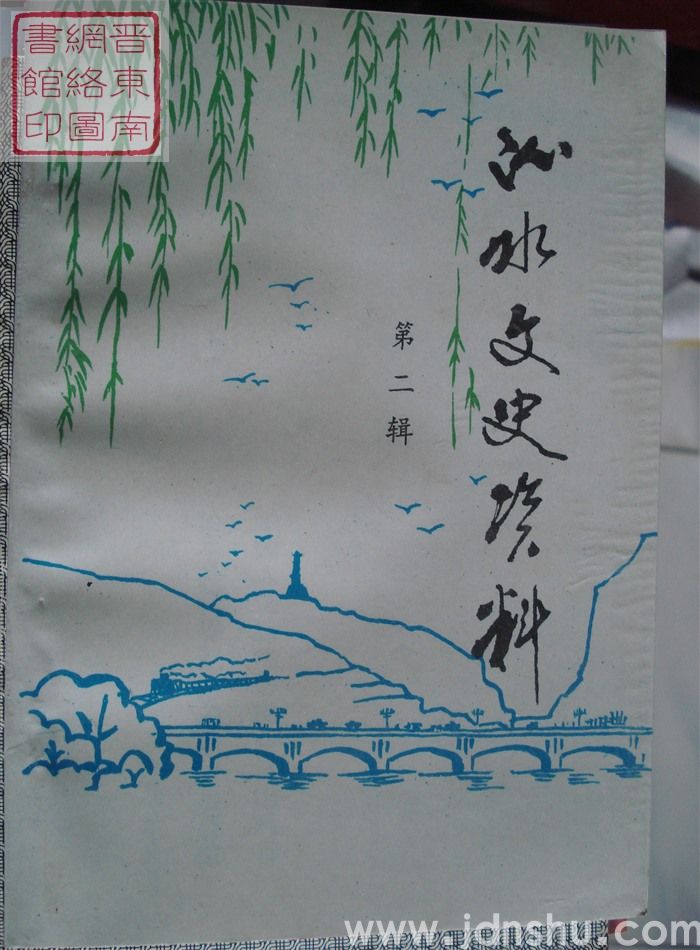 晋東南
網絡圖
書館印
沁水文史资料
第二辑
www.jdnshu.com